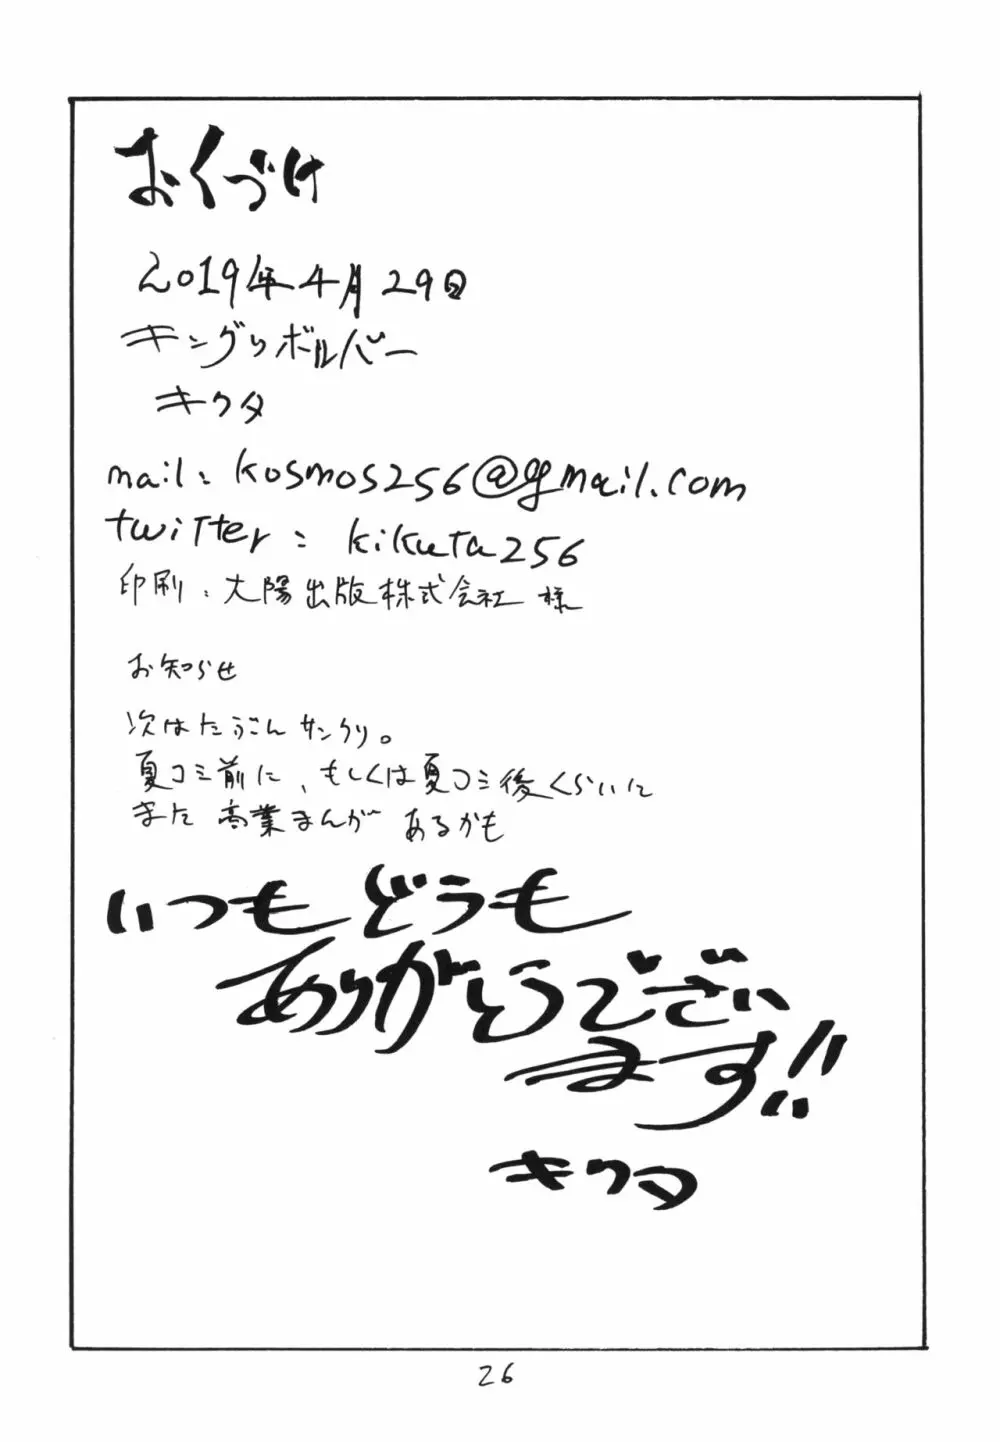 おくづけ
2019年4月29日
キングリボルバー
キクタ
mail: kosmos256@gmail.com
twitter: kikuta256
印刷: 大陽出版株式会社 様
お知らせ
次はたぶんサンクリ。
夏コミ前に、もしくは夏コミ後くらいに
また商業まんがあるかも
いつもどうも
ありがとうござい
ます!!
キクタ
26